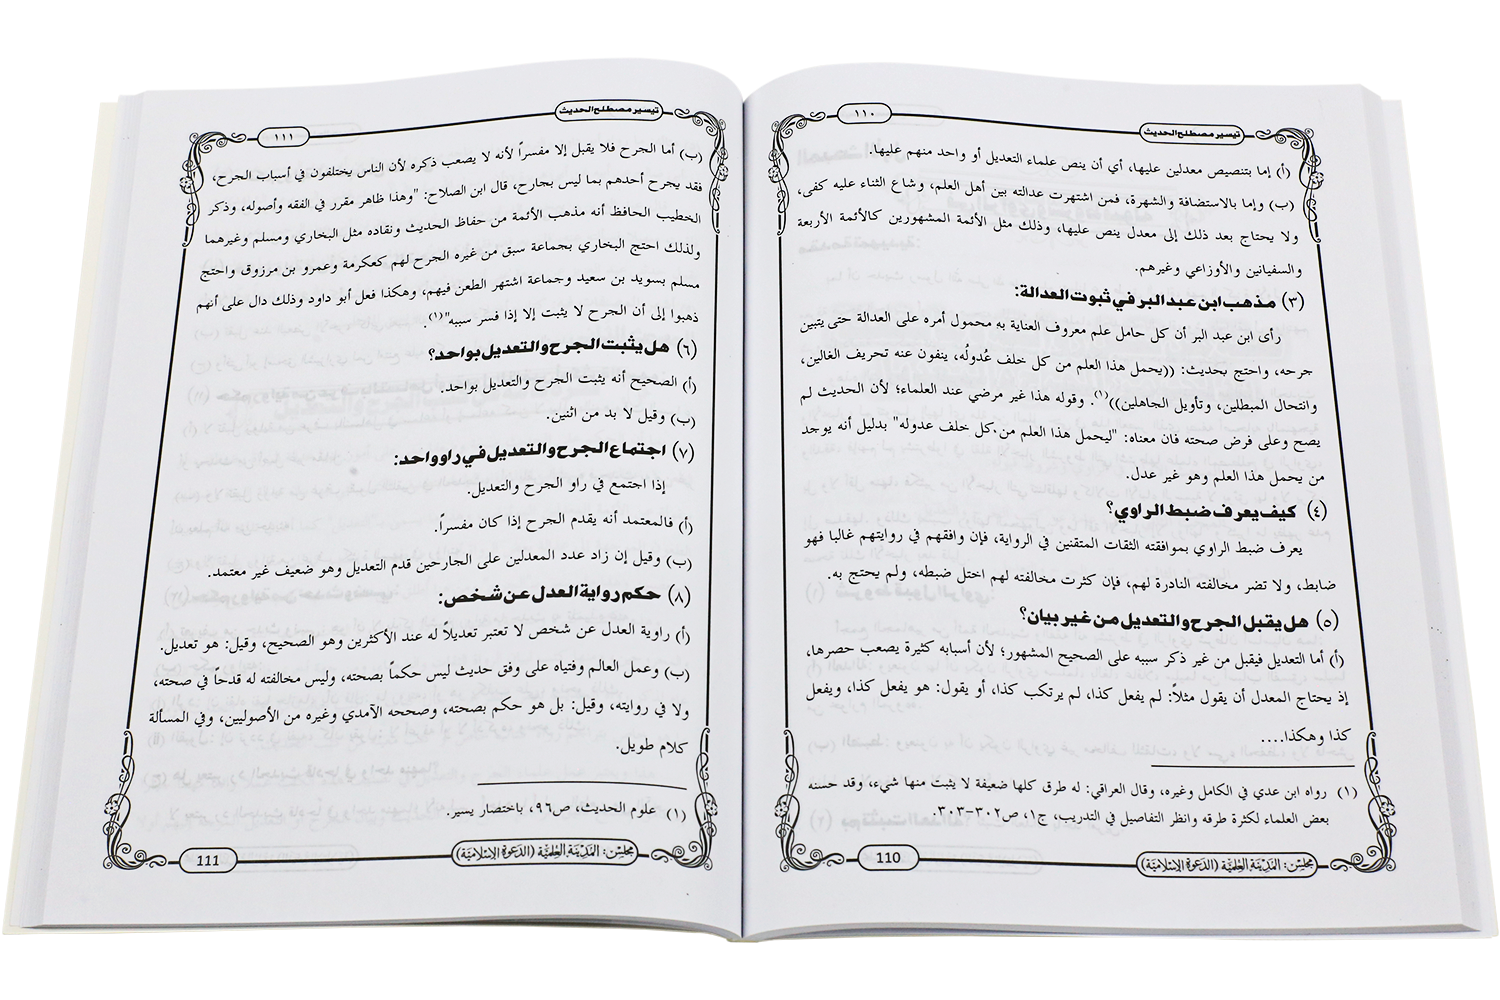 ١١٠
تيسير مصطلح الحديث
(أ) إما بتنصيص معدلين عليها، أي أن ينص علماء التعديل أو واحد منهم عليها.
(ب) وإما بالاستضافة والشهرة، فمن اشتهرت عدالته بين أهل العلم، وشاع الثناء عليه كفى،
ولا يحتاج بعد ذلك إلى معدل ينص عليها، وذلك مثل الأئمة المشهورين كالأئمة الأربعة
والسفيانين والأوزاعي وغيرهم.
(٣) مذهب ابن عبد البر في ثبوت العدالة:
رأى ابن عبد البر أن كل حامل علم معروف العناية به محمول أمره على العدالة حتى يتبين
جرحه، واحتج بحديث: ((يحمل هذا العلم من كل خلف عُدولُه، ينفون عنه تحريف الغالين،
وانتحال المبطلين، وتأويل الجاهلين))(١). وقوله هذا غير مرضي عند العلماء؛ لأن الحديث لم
يصح وعلى فرض صحته فان معناه: "ليحمل هذا العلم من كل خلف عدوله" بدليل أنه يوجد
من يحمل هذا العلم وهو غير عدل.
(٤) كيف يعرف ضبط الراوي؟
يعرف ضبط الراوي بموافقته الثقات المتقنين في الرواية، فإن وافقهم في روايتهم غالبا فهو
ضابط، ولا تضر مخالفته النادرة لهم، فإن كثرت مخالفته لهم اختل ضبطه، ولم يحتج به.
(٥) هل يقبل الجرح والتعديل من غير بيان؟
(أ) أما التعديل فيقبل من غير ذكر سببه على الصحيح المشهور؛ لأن أسبابه كثيرة يصعب حصرها،
إذ يحتاج المعدل أن يقول مثلاً: لم يفعل كذا، لم يرتكب كذا، أو يقول: هو يفعل كذا، ويفعل
كذا وهكذا....
(١) رواه ابن عدي في الكامل وغيره، وقال العراقي: له طرق كلها ضعيفة لا يثبت منها شيء، وقد حسنه
بعض العلماء لكثرة طرقه وانظر التفاصيل في التدريب، ج١، ص٣٠٢-٣٠٣.
مجلس: المدينة العلمية (الدعوة الإسلامية)
110
تيسير مصطلح الحديث
١١١
(ب) أما الجرح فلا يقبل إلا مفسراً لأنه لا يصعب ذكره لأن الناس يختلفون في أسباب الجرح،
فقد يجرح أحدهم بما ليس بجارح، قال ابن الصلاح: "وهذا ظاهر مقرر في الفقه وأصوله، وذكر
الخطيب الحافظ أنه مذهب الأئمة من حفاظ الحديث ونقاده مثل البخاري ومسلم وغيرهما
ولذلك احتج البخاري بجماعة سبق من غيره الجرح لهم كعكرمة وعمرو بن مرزوق واحتج
مسلم بسويد بن سعيد وجماعة اشتهر الطعن فيهم، وهكذا فعل أبو داود وذلك دال على أنهم
ذهبوا إلى أن الجرح لا يثبت إلا إذا فسر سببه"(١).
(٦) هل يثبت الجرح والتعديل بواحد؟
(أ) الصحيح أنه يثبت الجرح والتعديل بواحد.
(ب) وقيل لا بد من اثنين.
(٧) اجتماع الجرح والتعديل في راو واحد:
إذا اجتمع في راو الجرح والتعديل.
(أ) فالمعتمد أنه يقدم الجرح إذا كان مفسراً.
(ب) وقيل إن زاد عدد المعدلين على الجارحين قدم التعديل وهو ضعيف غير معتمد.
(٨) حكم رواية العدل عن شخص:
(أ) راوية العدل عن شخص لا تعتبر تعديلاً له عند الأكثرين وهو الصحيح، وقيل: هو تعديل.
(ب) وعمل العالم وفتياه على وفق حديث ليس حكماً بصحته، وليس مخالفته له قدحاً في صحته،
ولا في روايته، وقيل: بل هو حكم بصحته، وصححه الآمدي وغيره من الأصوليين، وفي المسألة
كلام طويل.
(١) علوم الحديث، ص٩٦، باختصار يسير.
مجلس: المدينة العلمية (الدعوة الإسلامية)
111